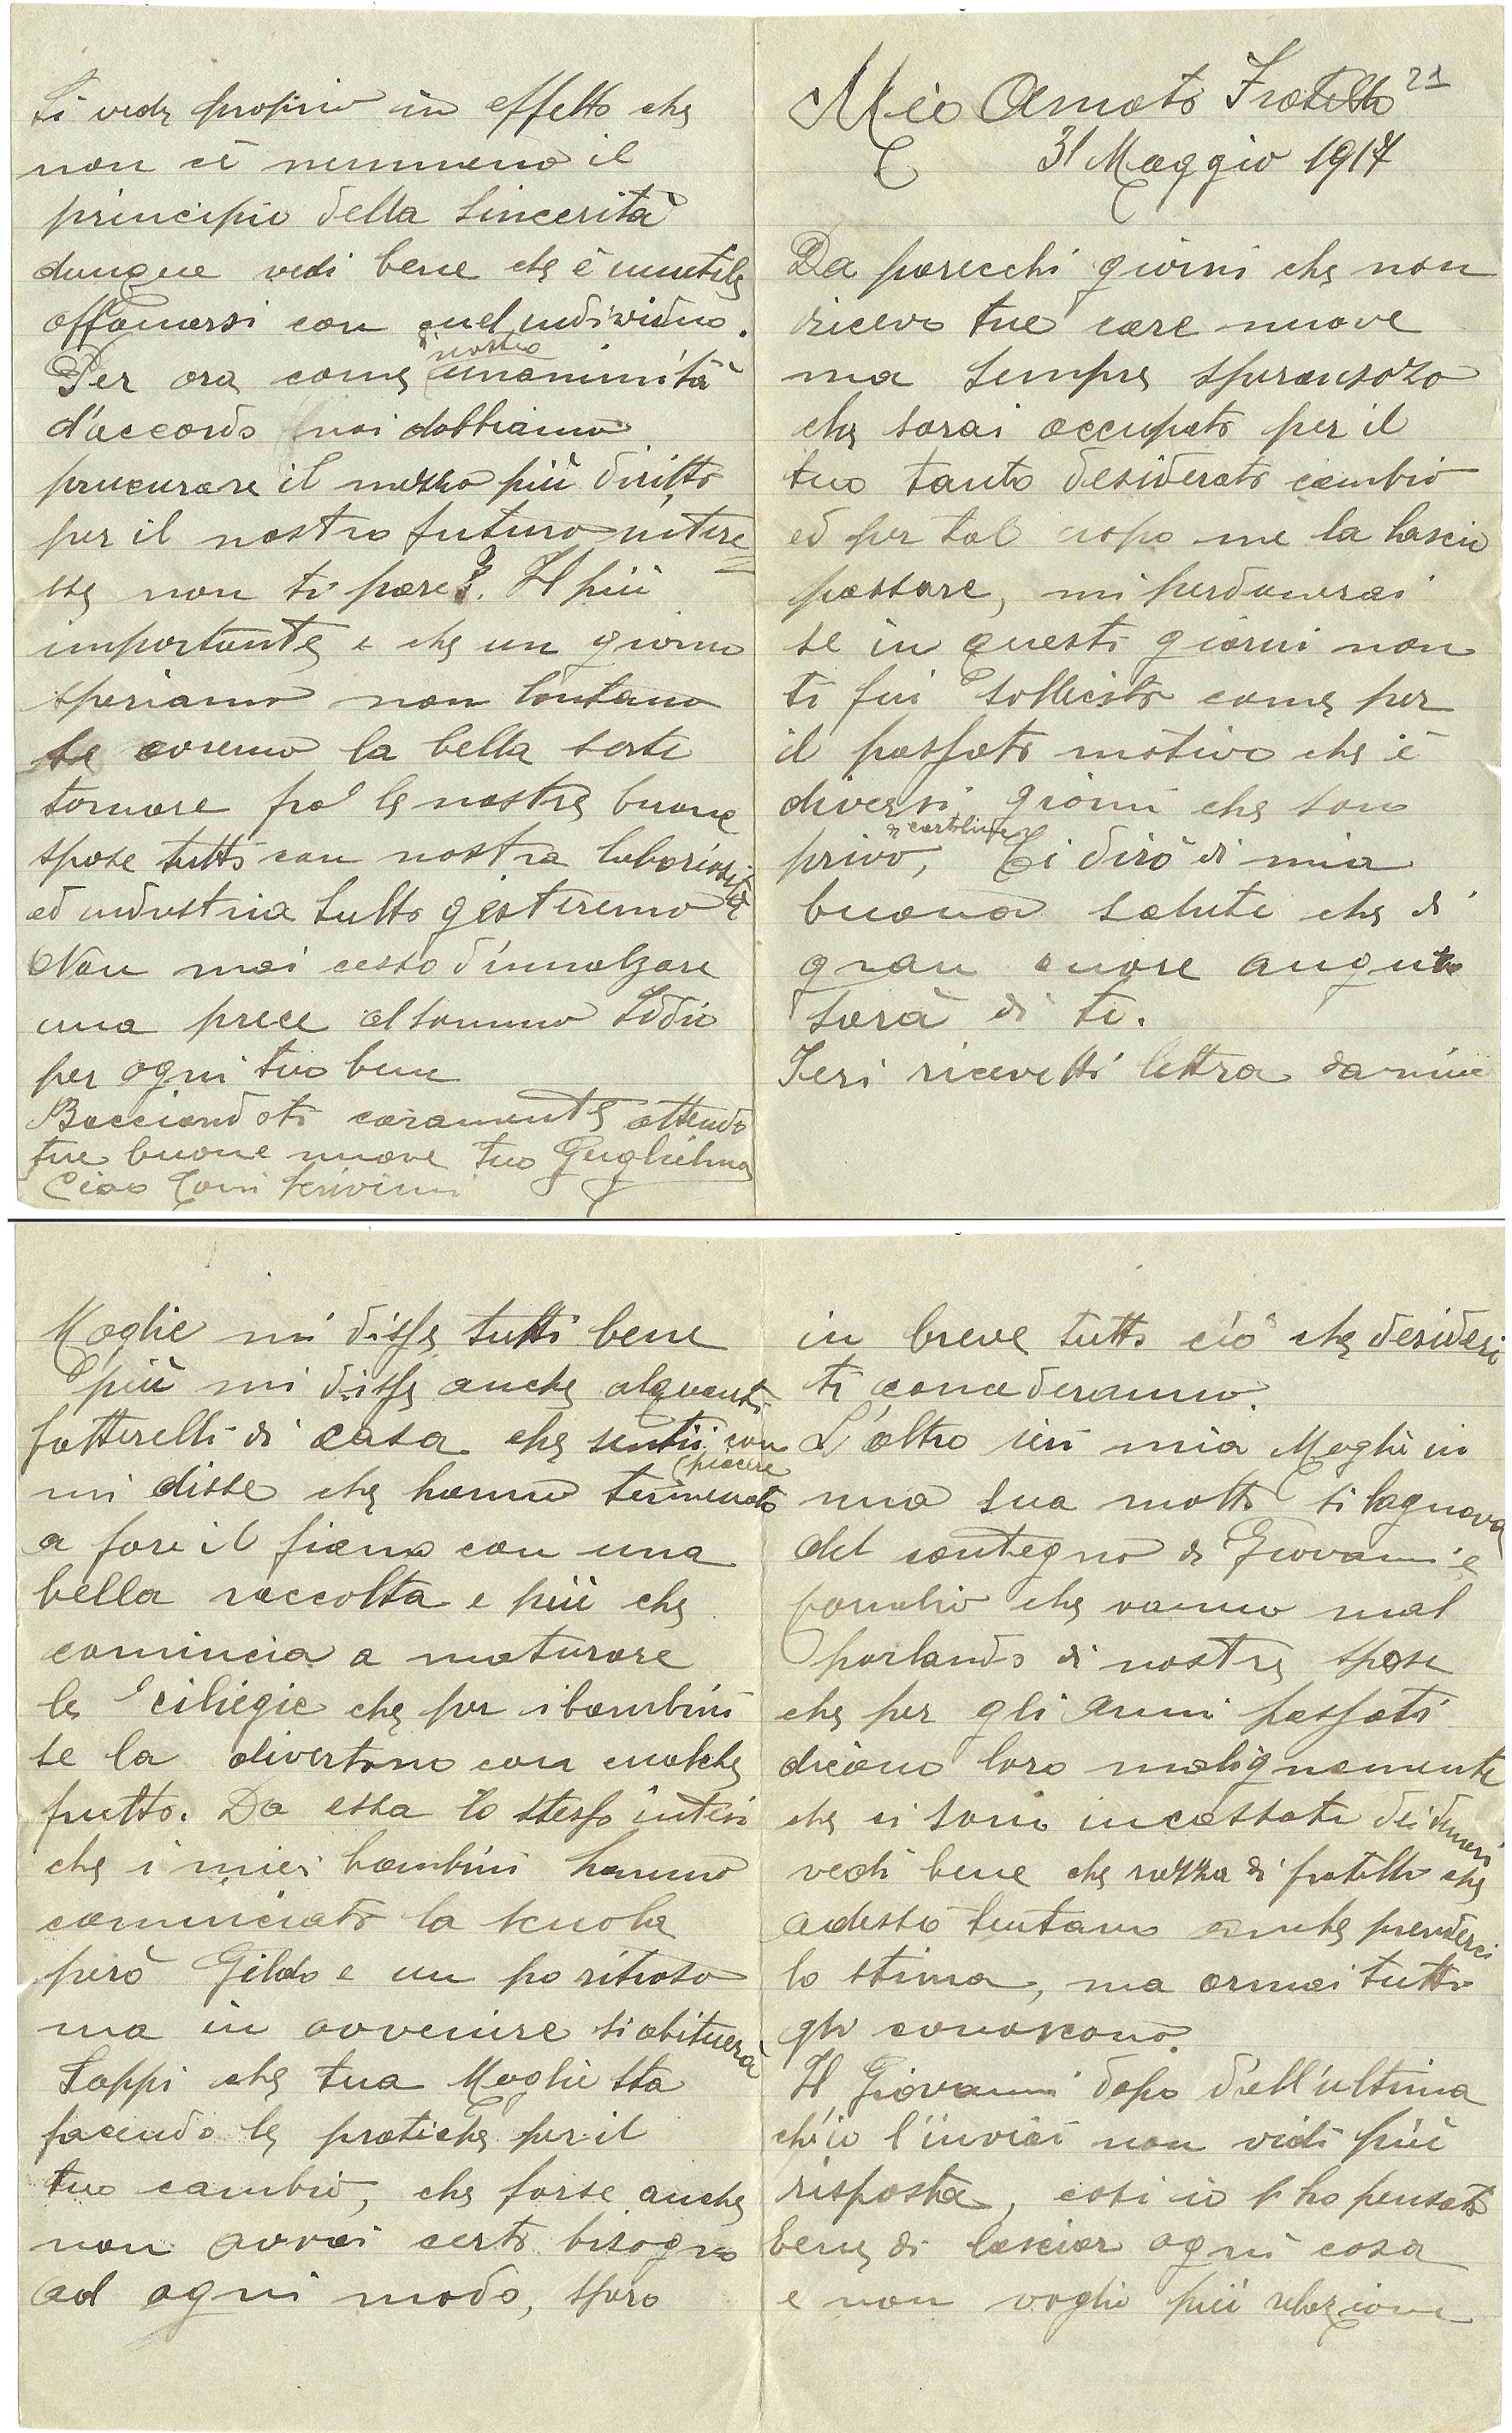 21
Mio Amato Fratello
31 Maggio 1917
Da parecchi giorni che non
ricevo tue care nuove
ma sempre speransoso
che sarai occupato per il
tuo tanto desiderato cambio
ed per tal uopo me la lascio
passare, mi perdonerai
se in questi giorni non
ti fui sollecito come per
il passato motivo che è
diversi giorni che sono
di cartoline
privo, Ti dirò di mia
buona salute che di
gran cuore auguro
sarà di te.
Ieri ricevetti lettra da mia
Moglie mi disse tutti bene
più mi disse anche alquanti
fatterelli di casa che sentii con
piacere
mi disse che hanno terminato
a fare il fieno con una
bella raccolta e più che
comincia a maturare
le ciliegie che per i bambini
se la divertono con qualche
frutto. Da essa lo stesso intesi
che i miei bambini hanno
cominciato la scuola
però Gildo e un po ritroso
ma in avvenire si abituerà
Sappi che tua Moglie sta
facendo le pratiche per il
tuo cambio, che forse anche
non avrai certo bisogno
ad ogni modo, spero
in breve tutto ciò che desideri
ti concederanno.
L'altro ieri mia Moglie in
una sua si lagnava
del contegno di Giovanni e
che vanno mal
parlando di nostre spose
che per gli anni passati
dicono loro malignamente
che si sono incassate dei denari
vedi bene che razza di fratelli che
adesso tentano anche prenderci
la stima, ma ormai tutti
gli conoscono.
Il Giovanni dopo dell'ultima
ch'io l'inviai non vidi più
risposta, cosi io l'ho pensato
bene di lasciar ogni cosa
e non voglio più relazione
Si vede proprio in effetto che
non cè nemmeno il
principio della sincerità
dunque vedi bene che è inutile
affannarsi con quel individuo.
di nostra
Per ora come unanimità
d'accordo noi dobbiamo
procurare il mezzo più diritto
per il nostro futuro intere
sse non ti pare?. Il più
importante e che un giorno
speriamo non lontano
se avremo la bella sorte
tornare fra le nostre buone
spose tutto con nostra laboriosità
ed industria tutto gestiremo
Non mai cesso d'innalzare
una prece al sommo Iddio
per ogni tuo bene
Bacciandoti caramente attendo
tue buone nuove tuo Guglielmo
Ciao Toni scrivimi